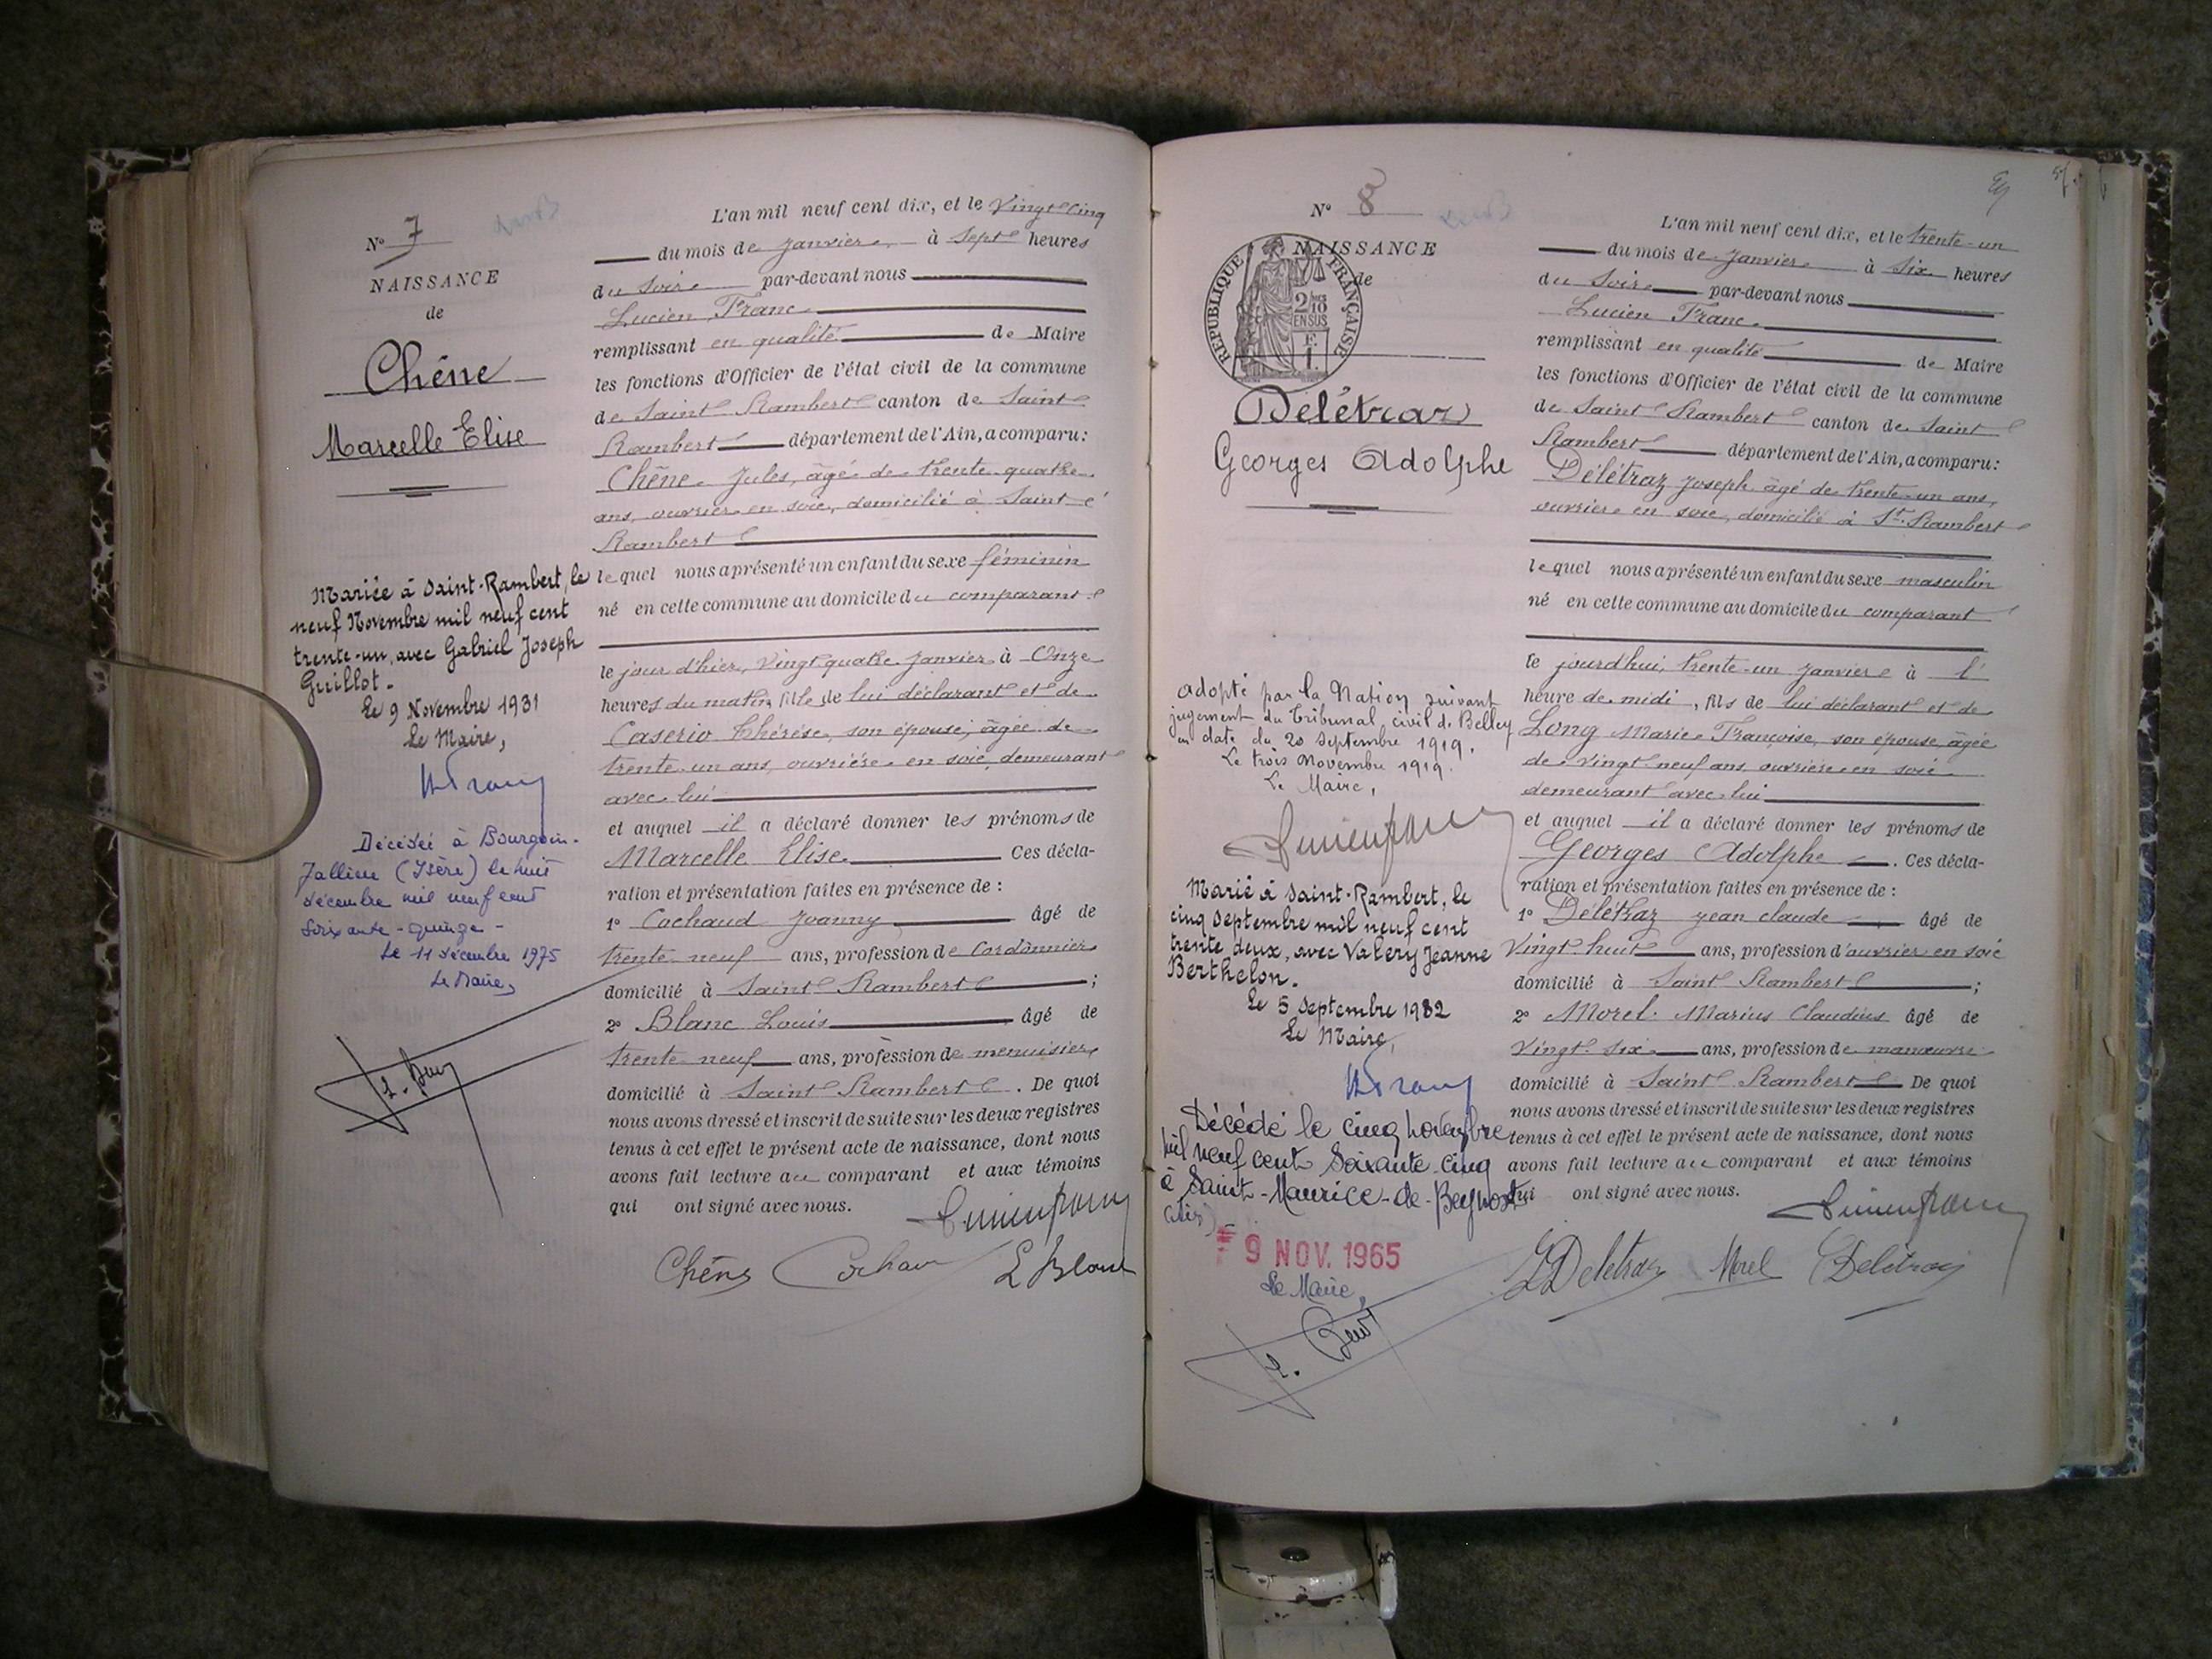 N° 7
NAISSANCE
de
Chêne
Marcelle Elise
Mariée à Saint-Rambert, le
neuf Novembre mil neuf cent
trente-un, avec Gabriel Joseph
Guillot.
Le 9 Novembre 1931
Le Maire,
Décédée à Bourgoin-
Jallieu (Isère) le huit
décembre mil neuf cent
soixante-quinze -
Le 11 décembre 1975
Le Maire,
L'an mil neuf cent dix, et le vingt cinq
du mois de janvier à sept heures
du soir par-devant nous
Lucien Franc
remplissant en qualité de Maire
les fonctions d'Officier de l'état civil de la commune
de Saint Rambert canton de Saint
Rambert département de l'Ain, a comparu:
Chêne Jules, âgé de trente quatre
ans, ouvrier en soie, domicilié à Saint
Rambert
lequel nous a présenté un enfant du sexe féminin
né en cette commune au domicile du comparant
le jour d'hier, vingt quatre janvier à Onze
heures du matin, fille de lui déclarant et de
Caserio Thérèse, son épouse, âgée de
trente-un ans, ouvrière en soie, demeurant
avec lui
et auquel il a déclaré donner les prénoms de
Marcelle Elise Ces décla-
ration et présentation faites en présence de :
1° Cochaud Joanny âgé de
trente neuf ans, profession de Cordonnier
domicilié à Saint Rambert ;
2° Blanc Louis âgé de
trente neuf ans, profession de menuisier
domicilié à Saint Rambert . De quoi
nous avons dressé et inscrit de suite sur les deux registres
tenus à cet effet le présent acte de naissance, dont nous
avons fait lecture au comparant et aux témoins
qui ont signé avec nous.
Lucien Franc
Chêne Cochaud L Blanc
N° 8
RÉPUBLIQUE FRANÇAISE
2/10
EN SUS
NAISSANCE
de
Délétraz
Georges Adolphe
adopté par la Nation suivant
jugement du Tribunal civil de Belley
en date du 20 septembre 1919.
Le trois Novembre 1919.
Le Maire,
Lucien Franc
Marié à Saint-Rambert, le
cinq Septembre mil neuf cent
trente deux, avec Valéry Jeanne
Berthelon.
Le 5 Septembre 1932
Le Maire,
Décédé le cinq novembre
mil neuf cent soixante cinq
à Saint-Maurice-de-Beynost
(Ain)
9 NOV. 1965
Le Maire,
L'an mil neuf cent dix, et le trente-un
du mois de janvier à six heures
du soir par-devant nous
Lucien Franc
remplissant en qualité de Maire
les fonctions d'Officier de l'état civil de la commune
de Saint Rambert canton de Saint
Rambert département de l'Ain, a comparu:
Délétraz Joseph âgé de trente-un ans,
ouvrier en soie, domicilié à St. Rambert
lequel nous a présenté un enfant du sexe masculin
né en cette commune au domicile du comparant
le jourd'hui, trente-un janvier à l'
heure de midi, fils de lui déclarant et de
Long Marie Françoise, son épouse, âgée
de vingt neuf ans, ouvrière en soie
demeurant avec lui
et auquel il a déclaré donner les prénoms de
Georges Adolphe . Ces décla-
ration et présentation faites en présence de :
1° Délétraz Jean Claude âgé de
vingt huit ans, profession d'ouvrier en soie
domicilié à Saint Rambert ;
2° Morel Marius Claudius âgé de
vingt six ans, profession de manœuvre
domicilié à Saint Rambert De quoi
nous avons dressé et inscrit de suite sur les deux registres
tenus à cet effet le présent acte de naissance, dont nous
avons fait lecture au comparant et aux témoins
qui ont signé avec nous.
Lucien Franc
Deletraz Morel Délétraz